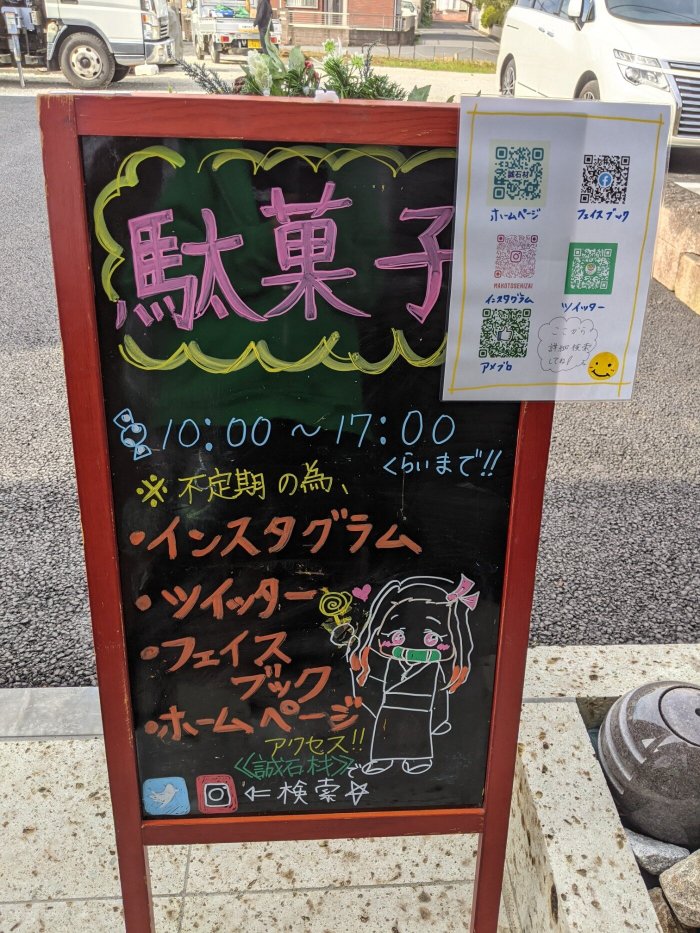 駄菓子
10:00～17:00
くらいまで!!
※不定期の為、
・インスタグラム
・ツイッター
・フェイス
ブック
・ホームページ
アクセス!!
《誠石材》で
⇐検索☆
誠石材
ホームページ
フェイスブック
MAKOTOSEKIZAI
インスタグラム
ツイッター
アメブロ
ここから
詳細検索
してね!